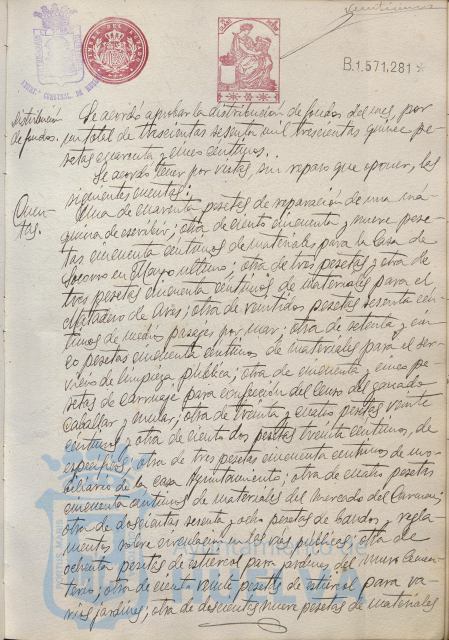 B.1.571,281
Distribución
de fondos.
Se acordó aprobar la distribución de fondos del mes, por
un total de trescientas sesenta mil trescientas quince pe-
setas cuarenta y cinco céntimos.
Se acordó tener por vistas, sin reparo que oponer, las
siguientes cuentas:
Cuen-
tas.
Una de cuarenta pesetas de reparación de una má-
quina de escribir; otra de ciento cincuenta y nueve pese-
tas cincuenta céntimos de materiales para la Casa de
Socorro en Mayo último; otra de tres pesetas y otra de
tres pesetas cincuenta céntimos de materiales para el
Matadero de Aves; otra de veintidos pesetas sesenta cén-
timos de medios pasajes por mar; otra de setenta y cin-
co pesetas cincuenta céntimos de materiales para el ser-
vicio de limpieza pública; otra de cincuenta y cinco pe-
setas de carruaje para confección del Censo del ganado
caballar y mular; otra de treinta y cuatro pesetas veinte
céntimos y otra de ciento dos pesetas treinta céntimos, de
específicos; otra de tres pesetas cincuenta céntimos de mo-
biliario de la casa Ayuntamiento; otra de cuatro pesetas
cincuenta céntimos de materiales del Mercado del Carmen;
otra de doscientas sesenta y ocho pesetas de bandos y regla
mentos sobre circulación en las vías públicas; otra de
ochenta pesetas de estiercol para jardines del nuevo Cemen-
terio; otra de ciento veinte pesetas de estiercol para va-
rios jardines; otra de doscientas nueve pesetas de materiales
Ayuntamiento de